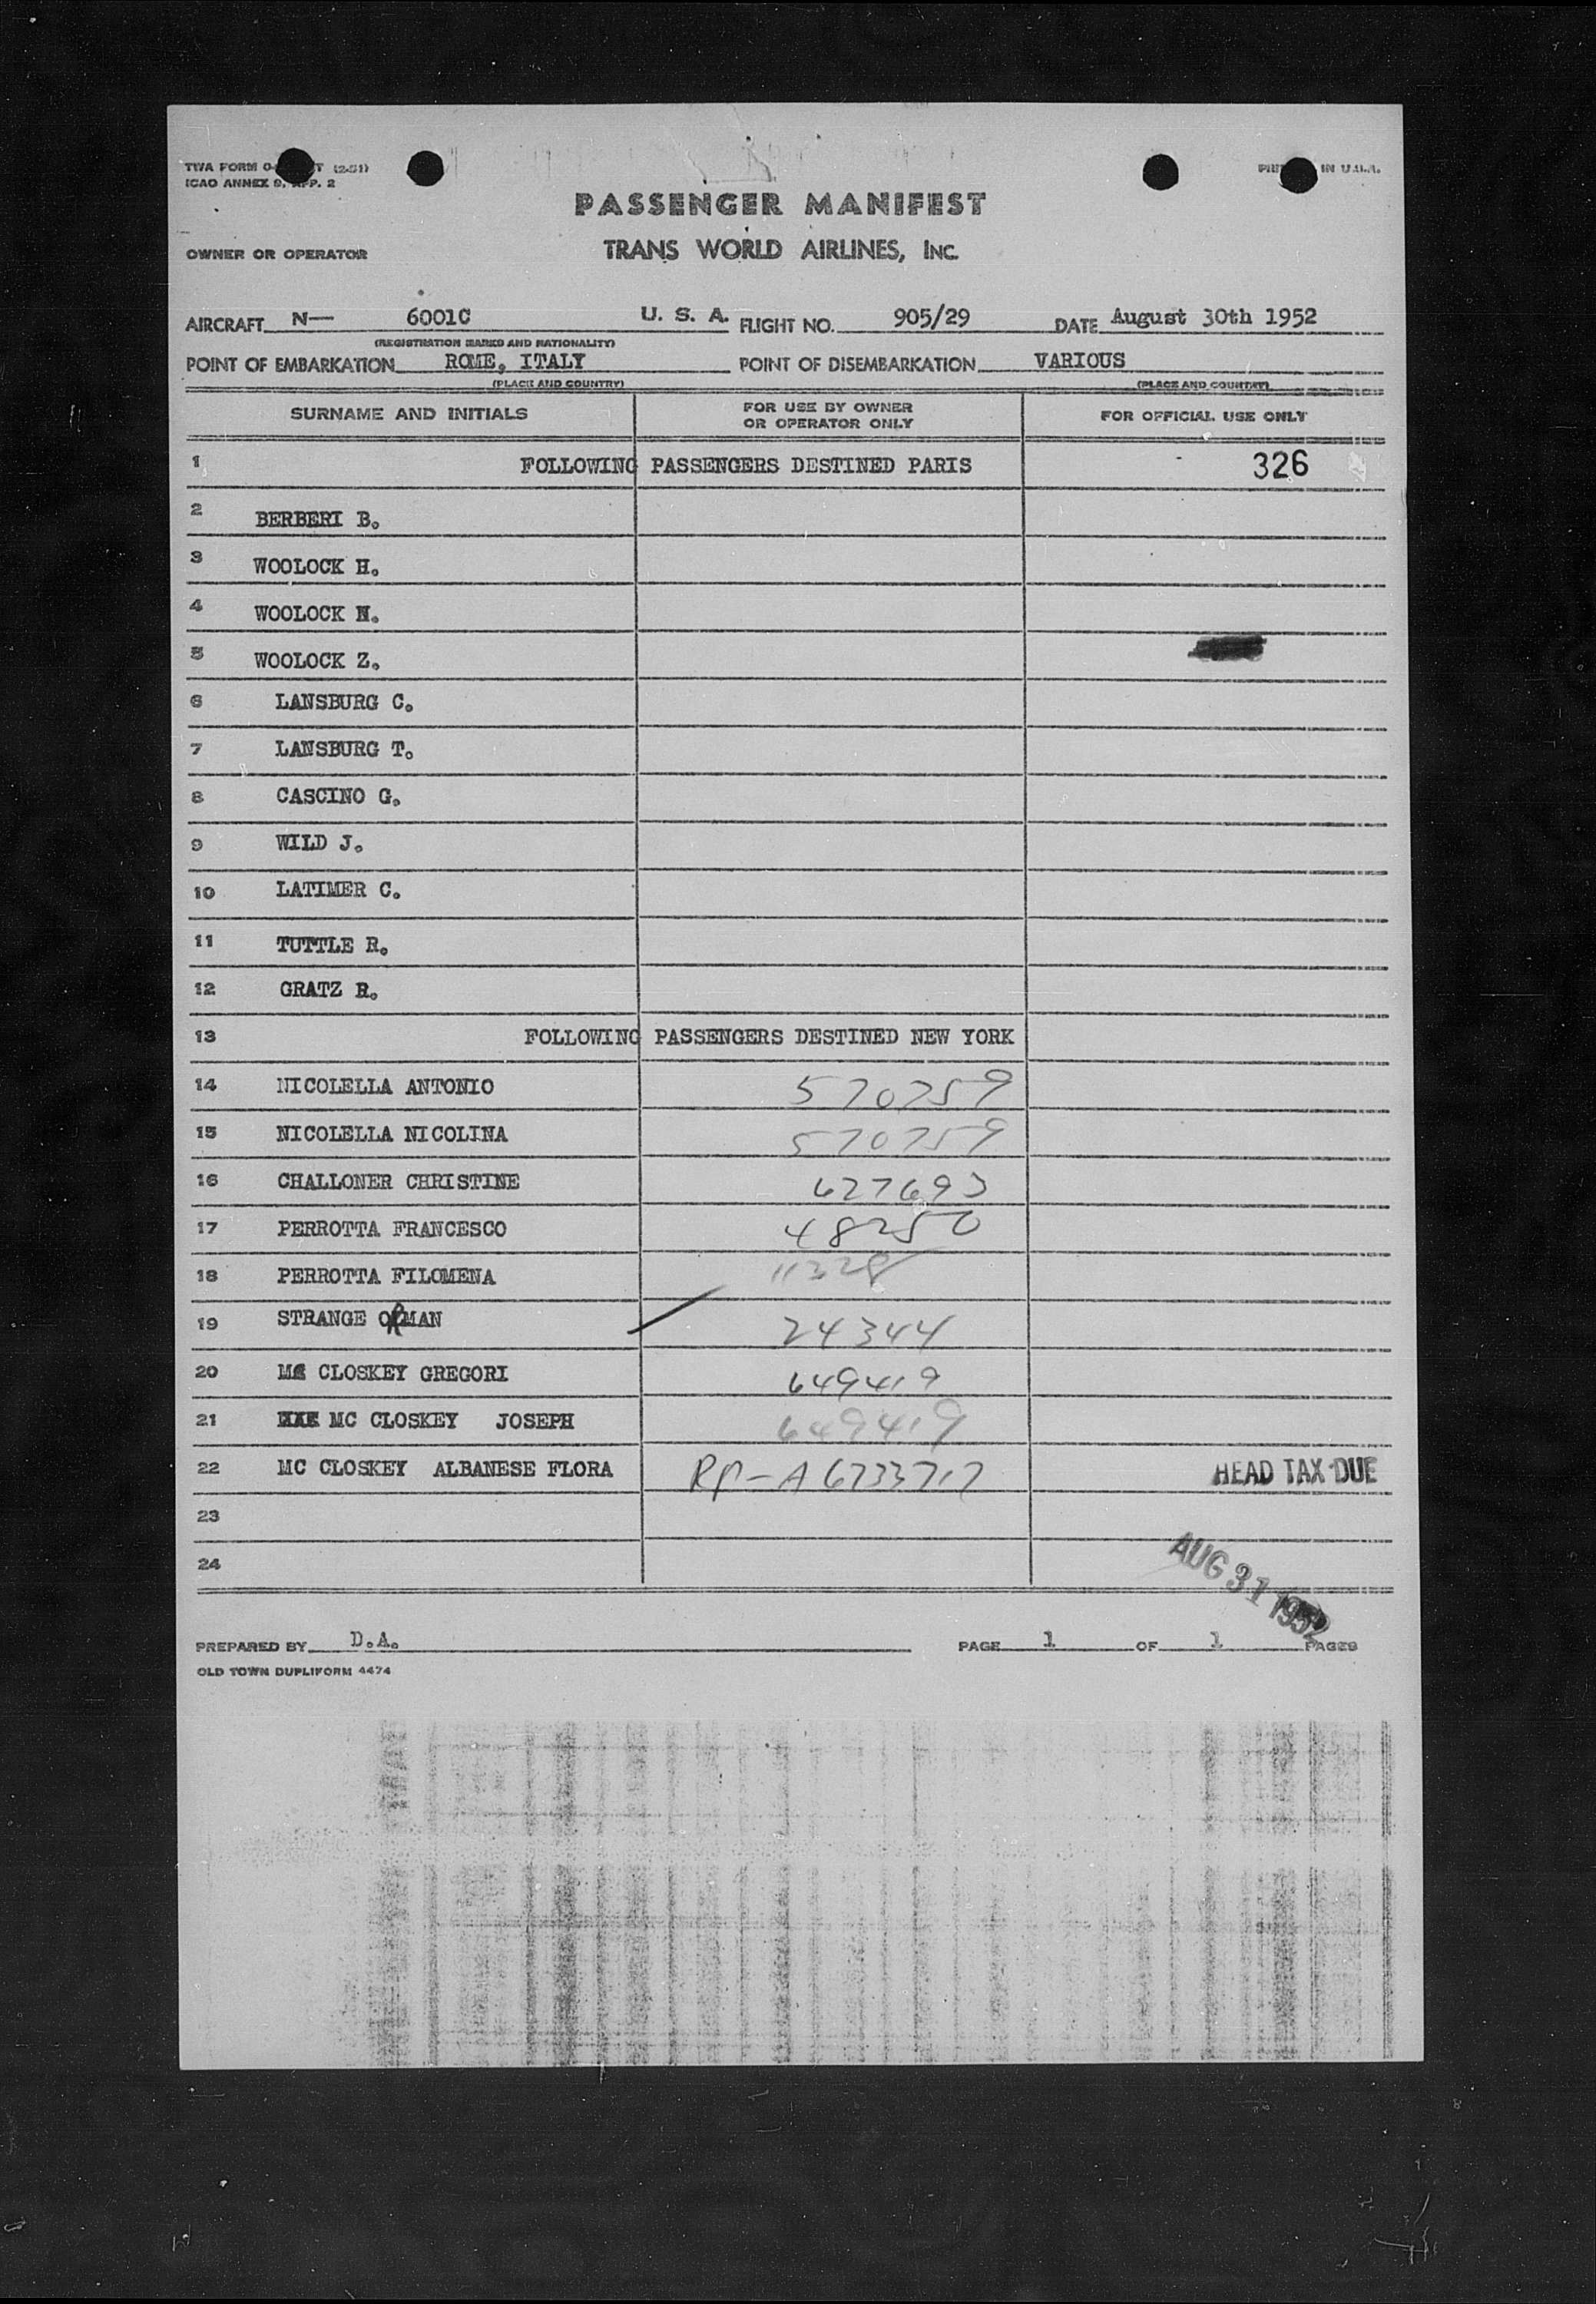 TWA FORM (2-51)
ICAO ANNEX 9, APP. 2
IN U.S.A.
PASSENGER MANIFEST
OWNER OR OPERATOR TRANS WORLD AIRLINES, INC.
AIRCRAFT N— 6001C U. S. A. FLIGHT NO. 905/29 DATE August 30th 1952
(REGISTRATION MARKS AND NATIONALITY)
POINT OF EMBARKATION ROME, ITALY POINT OF DISEMBARKATION VARIOUS
(PLACE AND COUNTRY) (PLACE AND COUNTRY)
SURNAME AND INITIALS FOR USE BY OWNER OR OPERATOR ONLY FOR OFFICIAL USE ONLY
1 FOLLOWING PASSENGERS DESTINED PARIS 326
2 BERBERI B.
3 WOOLOCK H.
4 WOOLOCK N.
5 WOOLOCK Z.
6 LANSBURG C.
7 LANSBURG T.
8 CASCINO G.
9 WILD J.
10 LATIMER C.
11 TUTTLE R.
12 GRATZ R.
13 FOLLOWING PASSENGERS DESTINED NEW YORK
14 NICOLELLA ANTONIO 570759
15 NICOLELLA NICOLINA 570759
16 CHALLONER CHRISTINE 627693
17 PERROTTA FRANCESCO 48250
18 PERROTTA FILOMENA 11328
19 STRANGE ORMAN 24344
20 MC CLOSKEY GREGORI 649419
21 MC CLOSKEY JOSEPH 649419
22 MC CLOSKEY ALBANESE FLORA RP-A6733717 HEAD TAX DUE
23
24
AUG 31 1952
PREPARED BY D.A. PAGE 1 OF 1 PAGES
OLD TOWN DUPLIFORM 4474